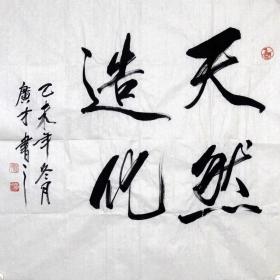 天然
造化
乙未年冬月
廣才書之